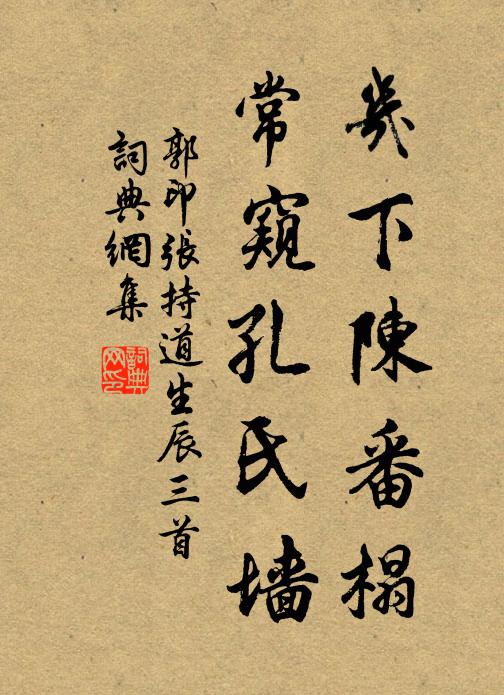 幾下陳番榻
常窺孔氏墻
郭印張持道生辰三首
詞典網集
詞典
网印